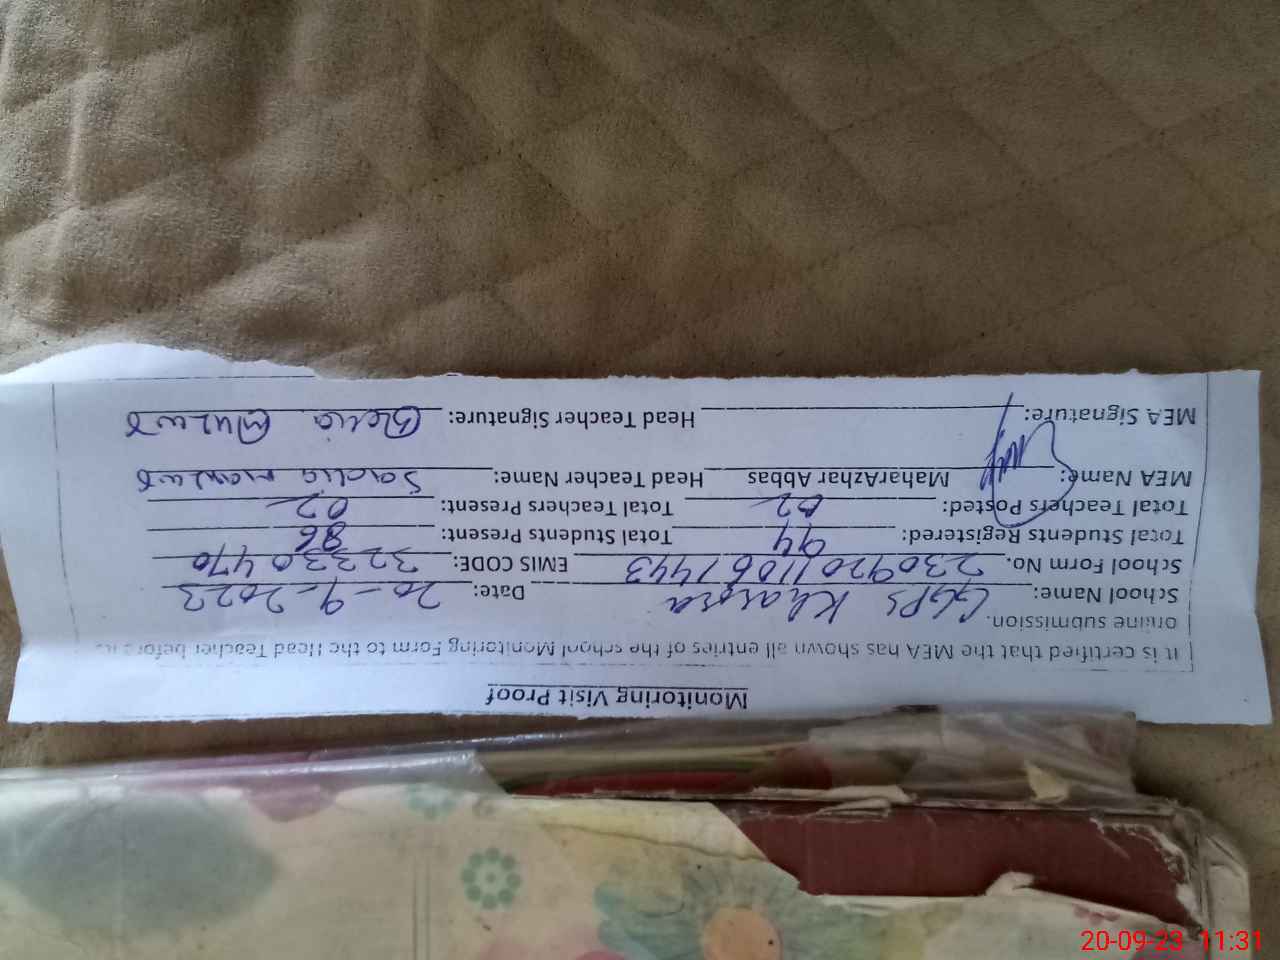 Monitoring Visit Proof
It is certified that the MEA has shown all entries of the school Monitoring Form to the Head Teacher before its
online submission.
School Name: GGPS Kharora Date: 20-9-2023
School Form No. 2309201106 1443 EMIS CODE: 32330470
Total Students Registered: 94 Total Students Present: 86
Total Teachers Posted: 02 Total Teachers Present: 02
MEA Name: MaharAzhar Abbas Head Teacher Name: Sadia
MEA Signature: Head Teacher Signature:
20-09-23 11:31